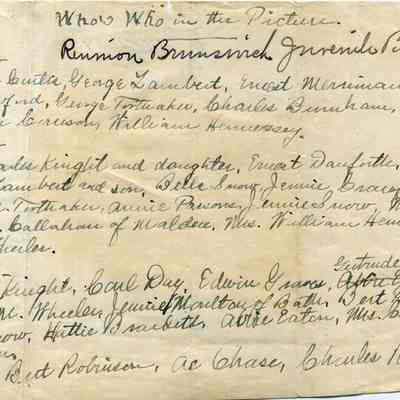 Who's Who in the Picture.
Reunion Brunswick Juvenile
Curtis, George Lambert, Ernest Merriman
ford, George Toothaker, Charles Burnham,
Cruson, William Hennessey.
Knight and daughter, Ernest Danforth,
Lambert and son, Belle Snow, Jennie
Toothaker, Annie Parsons, Jennie Snow,
Callahan of Malden, Mrs. William
Wheeler.
Gertrude
Knight, Carl Day, Edwin Graves,
Wheeler, Jennie Moulton of Bath, Bert
Hattie Addie Eaton, Mrs.
Bert Robinson, Al Chase, Charles